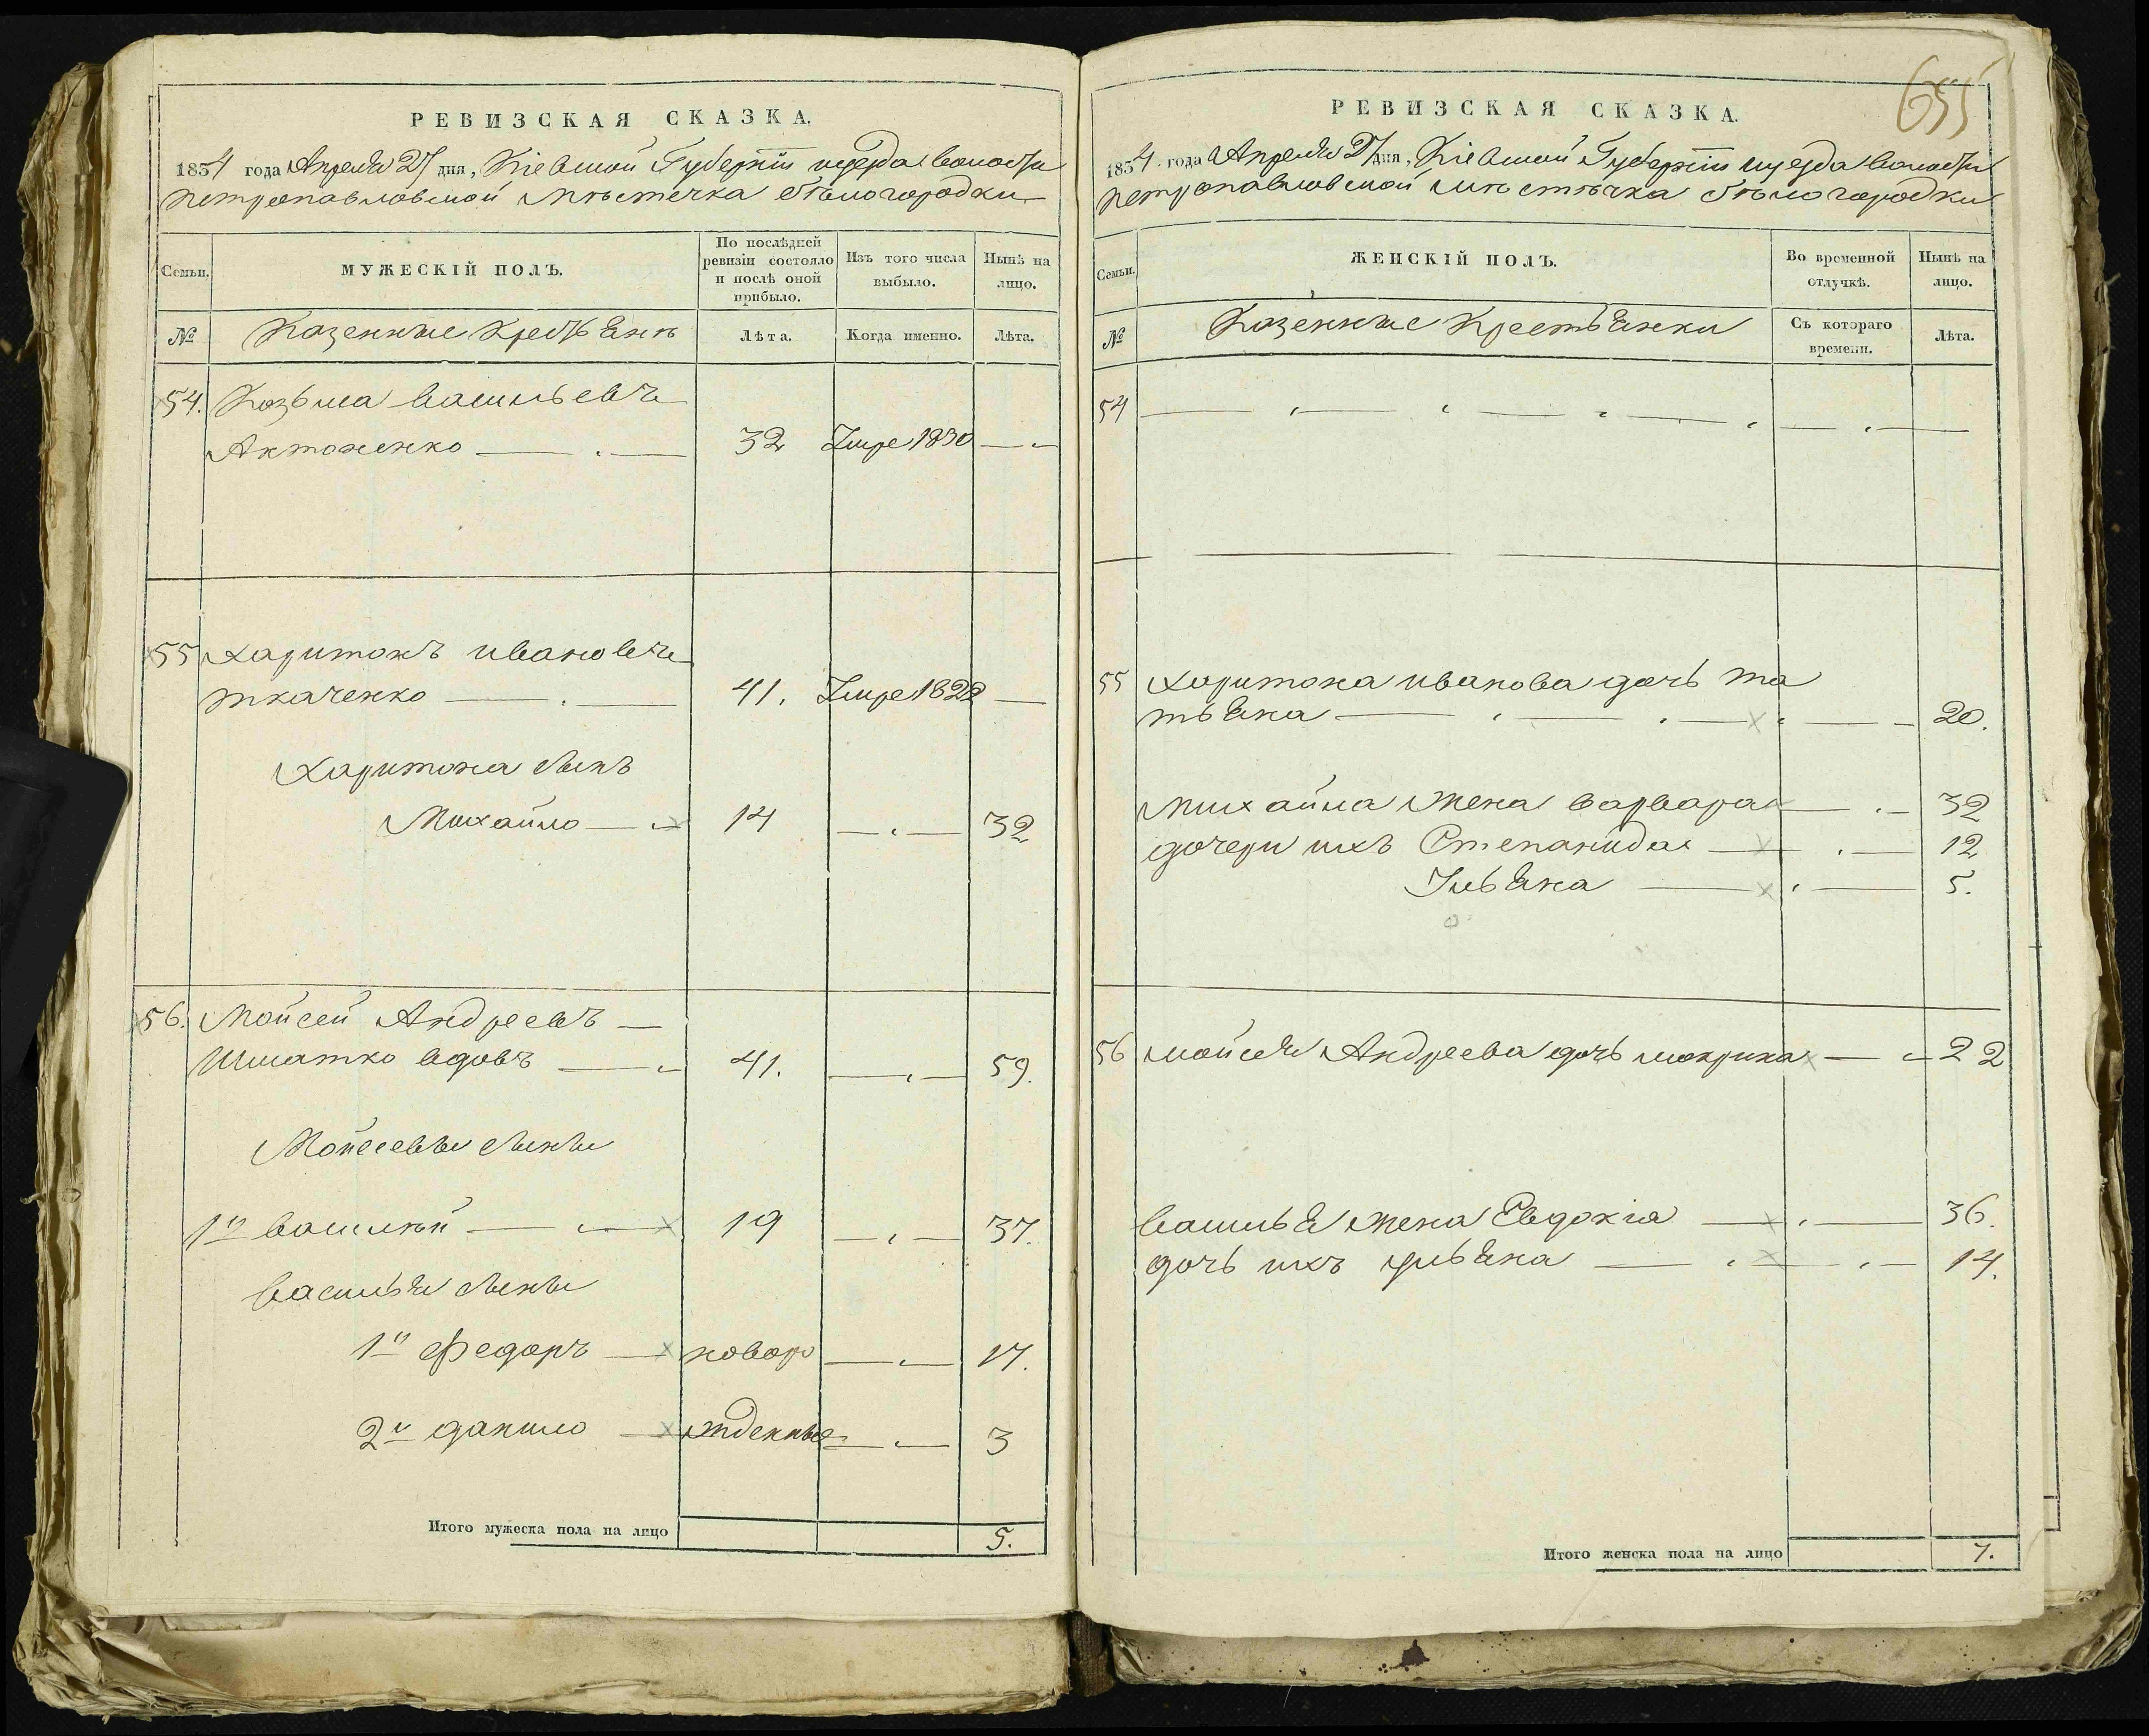 РЕВИЗСКАЯ СКАЗКА.
1854 года Апреля 27 дня, Кіевской Губерніи и уезда волости
петропавловской мѣстечка бѣлогородки
Семьи. МУЖЕСКІЙ ПОЛЪ. По послѣдней ревизіи состояло и послѣ оной прибыло. Изъ того числа выбыло. Нынѣ на лицо.
№ Казенные Крестьяне Лѣта. Когда именно. Лѣта.
54. Козьма васильевъ
Антоненко 32 Умре 1850
55 харитонъ ивановъ
ткаченко 41. Умре 1822
Харитона сынъ
Михайло 14 32
56. Мойсей Андреевъ
Шматко вдовъ 41. 59.
Мойсеевы сыны
1й василій 19 37.
васильа сыны
1й Федоръ новоро 17.
2й данило жденные 3
Итого мужеска пола на лицо 5.
655
РЕВИЗСКАЯ СКАЗКА.
1854 года Апреля 27 дня, Кіевской Губерніи и уезда волости
петропавловской мѣстѣчка бѣлогородки
Семьи. ЖЕНСКІЙ ПОЛЪ. Во временной отлучкѣ. Нынѣ на лицо.
№ Казенные Крестьянки Съ котораго времени. Лѣта.
54
55 Харитона иванова дочь та
тьяна 20.
михайла жена варвара 32
дочери ихъ Степанида 12
Ульяна 5.
56 мойсея Андреева дочь мокрина 22
василья жена Евдокія 36.
дочь ихъ ульяна 14.
Итого женска пола на лицо 7.